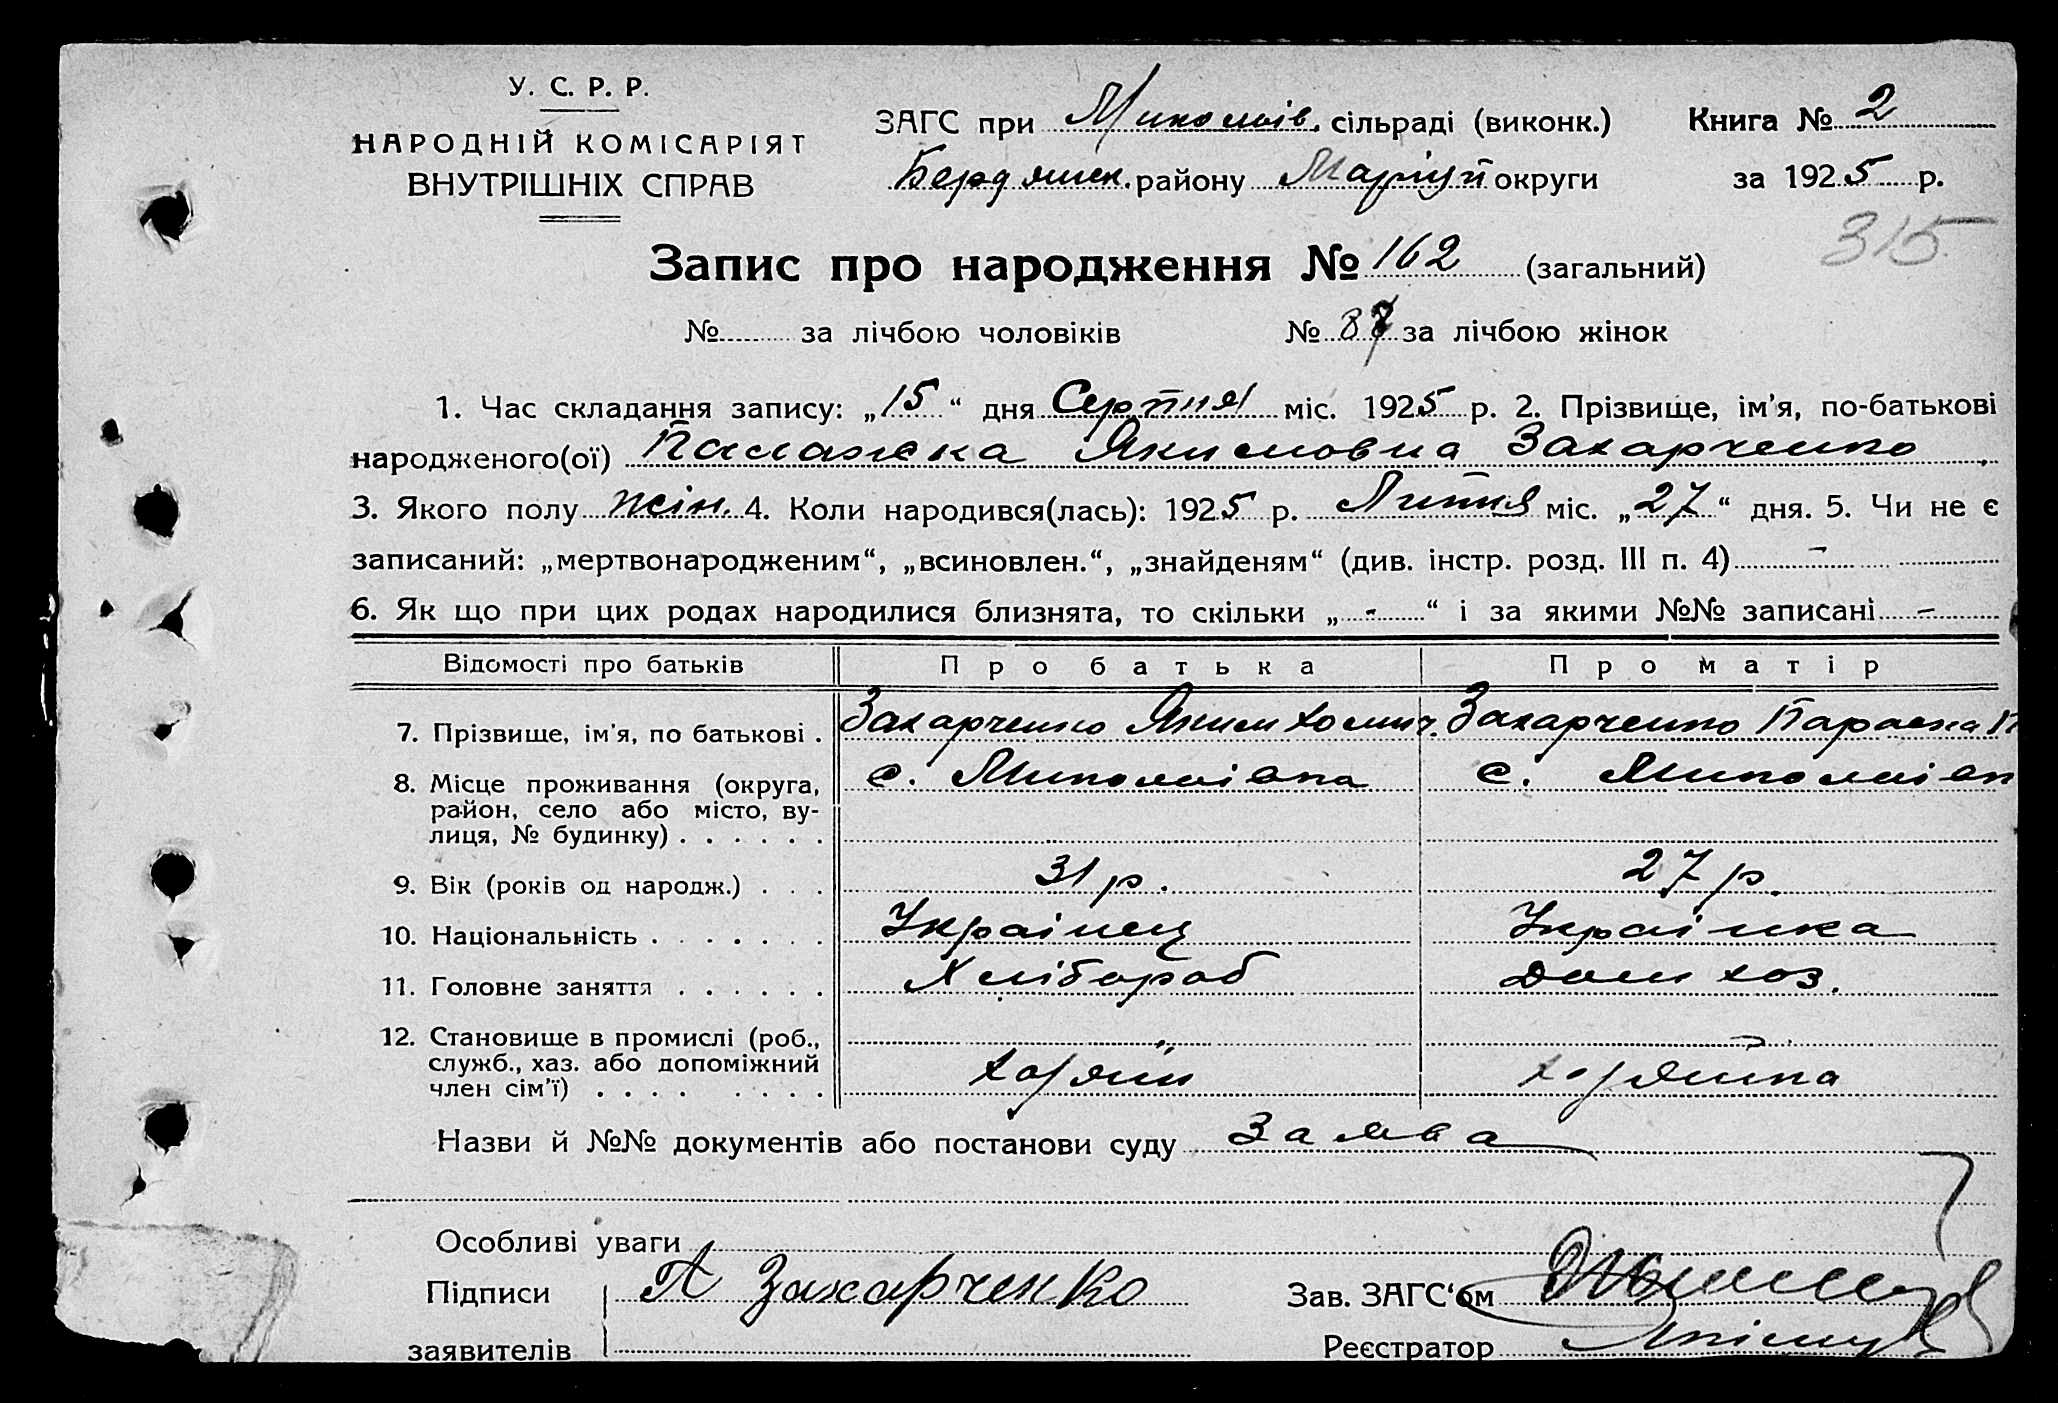 У. С. Р. Р.
НАРОДНІЙ КОМІСАРІЯТ
ВНУТРІШНІХ СПРАВ
ЗАГС при Миколаїв. сільраді (виконк.)
Бердянск. району Маріуп округи
Книга № 2
за 1925 р.
315
Запис про народження № 162 (загальний)
№ за лічбою чоловіків № 87 за лічбою жінок
1. Час складання запису: „15“ дня Серпня міс. 1925 р. 2. Прізвище, ім'я, по-батькові
народженого(ої) Палажка Якимовна Захарченко
3. Якого полу жін. 4. Коли народився(лась): 1925 р. Липня міс. „27“ дня. 5. Чи не є
записаний: „мертвонародженим“, „всиновлен.“, „знайденям“ (див. інстр. розд. III п. 4) -
6. Як що при цих родах народилися близнята, то скільки „-“ і за якими №№ записані -
Відомості про батьків Про батька Про матір
7. Прізвище, ім'я, по батькові . Захарченко Яким Хомич. Захарченко Параска П
8. Місце проживання (округа, с. Миколаівка с. Миколаівк
район, село або місто, ву-
лиця, № будинку) . . . . . .
9. Вік (років од народж.) . . . 31 р. 27 р.
10. Національність . . . . . . . Украінец Украінка
11. Головне заняття . . . . . . Хлібороб Дом хоз.
12. Становище в промислі (роб.,
служб., хаз. або допоміжний хозяїн хозяйка
член сім'ї) . . . . . . . .
Назви й №№ документів або постанови суду Заява
Особливі уваги
Підписи А Захарченко Зав. ЗАГС‘ом
заявителів Реєстратор